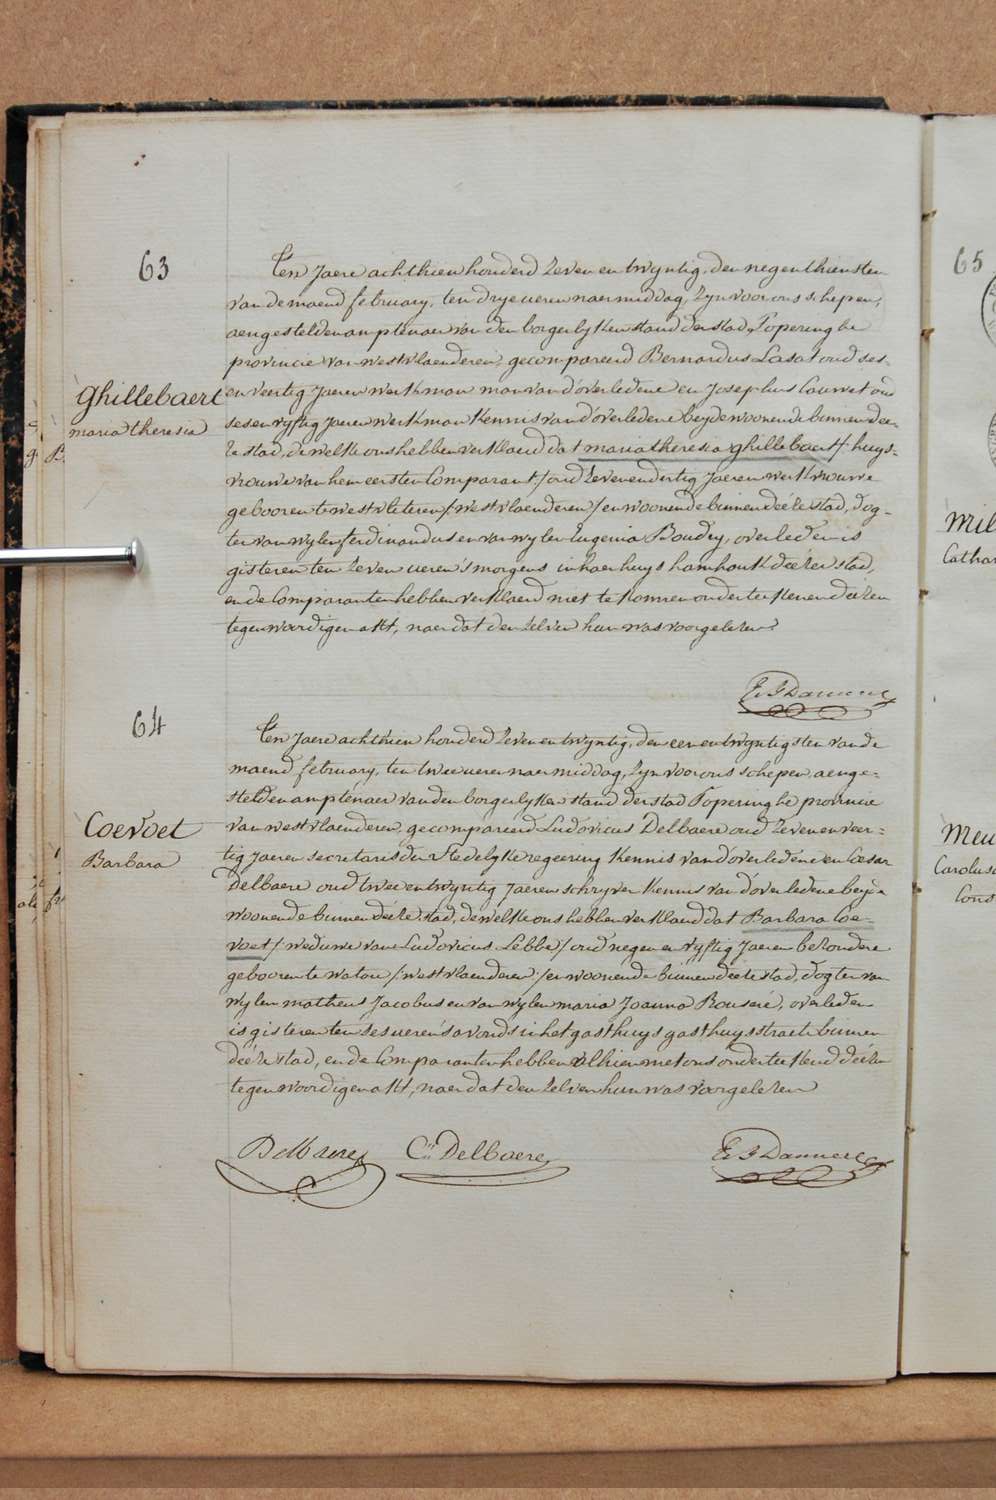 63
Ghillebaert
maria theresia
Ten Jaere achthien honderd zeven en twyntig, den negenthiensten
van de maend february, ten drye ueren naermiddag, zyn voor ons schepen,
aengestelden amptenaer van den borgerlyken stand der stad Poperinghe
provincie van westvlaenderen, gecompareerd Bernardus Lasat oud ses-
en veertig Jaeren werkman man van d'overledene en Josephus Cauwet oud
ses en vyftig Jaeren werkman Kennis van d'overledene beyde woonende binnen dee-
ze stad, de welke ons hebben verklaerd dat maria theresia ghillebaert / huys-
vrouwe van hem eersten Comparant / oud zeven en dertig Jaeren werkvrouwe
gebooren te westvleteren / westvlaenderen / en woonende binnen deéze stad, dog-
ter van wylen ferdinandus en van wylen Eugenia Boudry, overleden is
gisteren ten zeven ueren 's morgens in haer huys hamhoek deézer stad,
en de Comparanten hebben verklaerd niet te konnen onderteekenen deézen
tegenwoordigen akt, naer dat den zelven hun was voorgelezen
64
Coevoet
Barbara
Ten Jaere achthien honderd zeven en twyntig, den een en twyntigsten van de
maend february, ten twee ueren naermiddag, zyn voor ons schepen, aenge-
stelden amptenaer van den borgerlyken stand der stad Poperinghe provincie
van westvlaenderen, gecompareerd Ludovicus Delbaere oud zeven en veer-
tig Jaeren secretaris der stedelyke regeering Kennis van d'overledene en Cesar
Delbaere oud twee en twyntig Jaeren schryver Kennis van d'overledene beyde
woonende binnen deéze stad, de welke ons hebben verklaerd dat Barbara Coe-
voet / weduwe van Ludovicus Lebbe / oud negen en vyftig Jaeren bezondere
gebooren te watou / westvlaenderen / en woonende binnen deeze stad, dogter van
wylen matheus Jacobus en van wylen maria Joanna Rouseré, overleden
is gisteren ten ses ueren 's avonds in het gasthuys gasthuysstraete binnen
deéze stad, en de Comparanten hebben alhier met ons onderteekend deézen
tegenwoordigen akt, naer dat den zelven hun was voorgelezen
Delbaere Delbaere
65
Mil
Cathar
Meu
Carolus
Cons